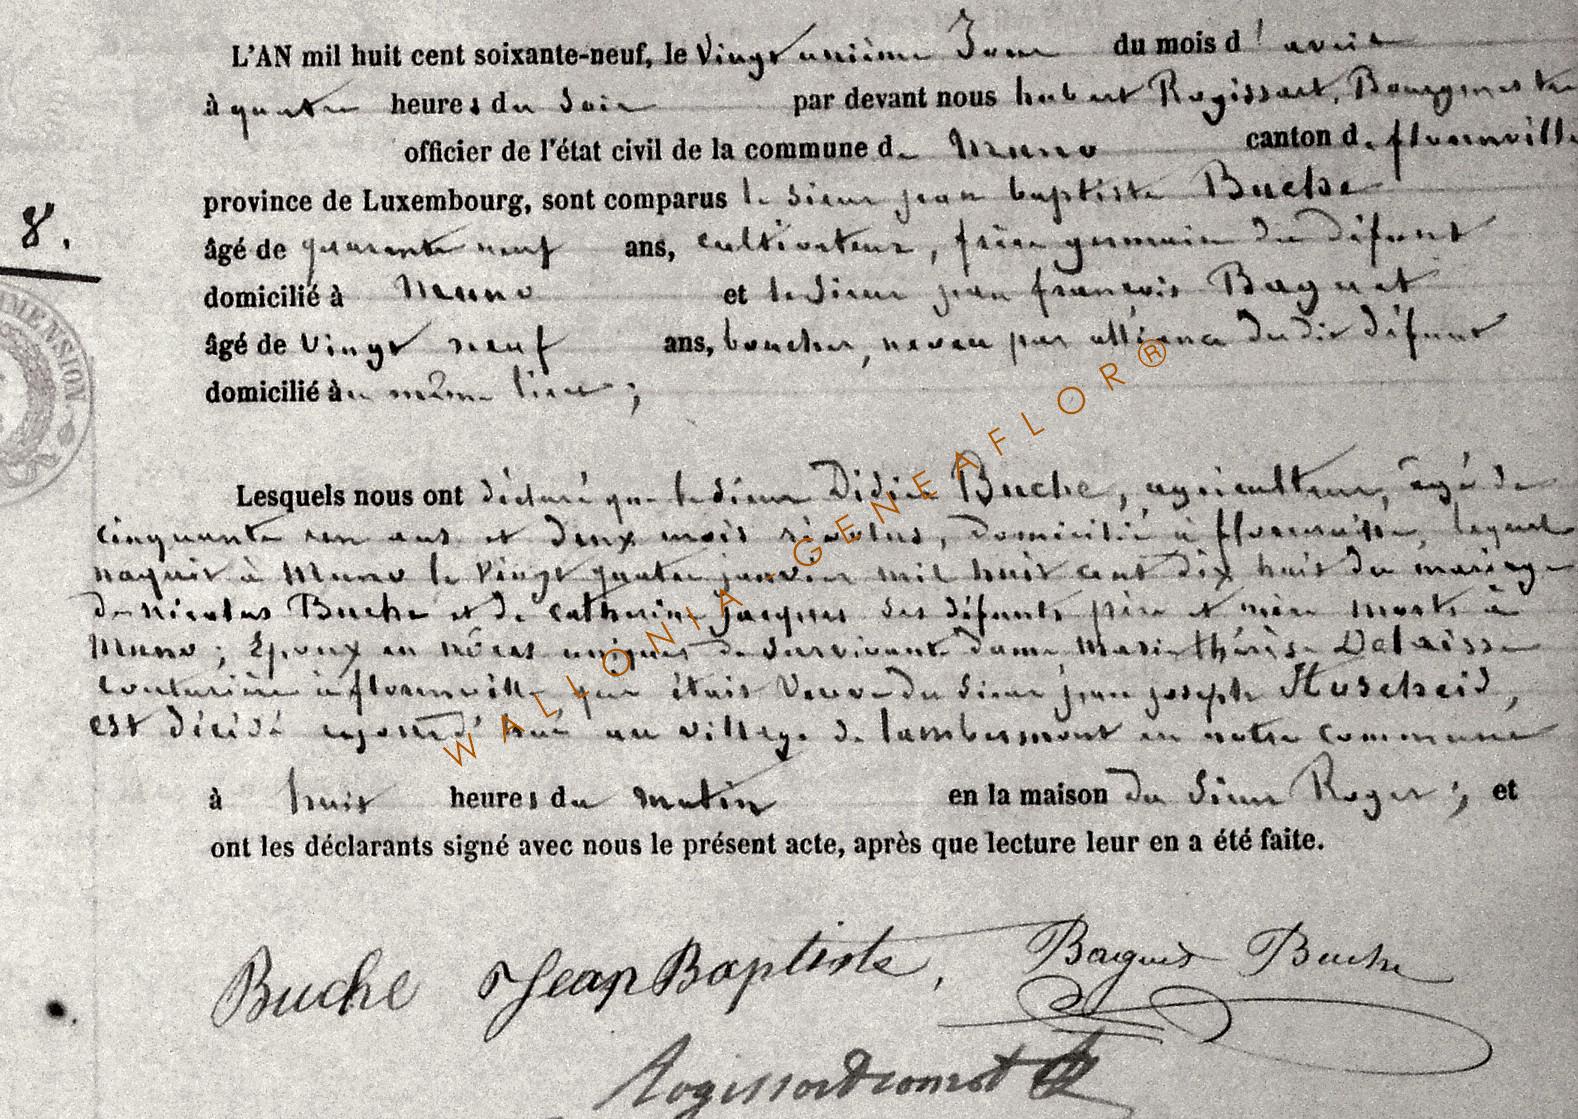 L'AN mil huit cent soixante-neuf, le Vingt unième Jour du mois d'avril
à quatre heures du Soir par devant nous hubert Rogissart, Bourgmestre
officier de l'état civil de la commune de Muno canton de florenville
province de Luxembourg, sont comparus le sieur jean baptiste Buche
8.
âgé de quarante neuf ans, cultivateur, frère germain du défunt
domicilié à Muno et le sieur jean françois Baguet
âgé de Vingt neuf ans, boucher, neveu par alliance du dit défunt
domicilié au même lieu ;
MENSION
Lesquels nous ont déclaré que le sieur Didier Buche, agriculteur, âgé de
cinquante un ans et deux mois révolus, domicilié à florenville, lequel
naquit à Muno le Vingt quatre janvier mil huit cent dix huit du mariage
de nicolas Buche et de catherine jacques des défunts père et mère morts à
Muno ; Epoux en nôces uniques de survivante dame Marie thérèse Delaisse
couturière à florenville, qui était Veuve du sieur jean joseph Huscheid,
est décédé aujourd'hui au village de lambermont en notre commune
à huit heures du matin en la maison du sieur Roger ; et
ont les déclarants signé avec nous le présent acte, après que lecture leur en a été faite.
Buche Jean Baptiste, Baguet Buche
Rogissart
WALLONIA-GENEAFLOR®